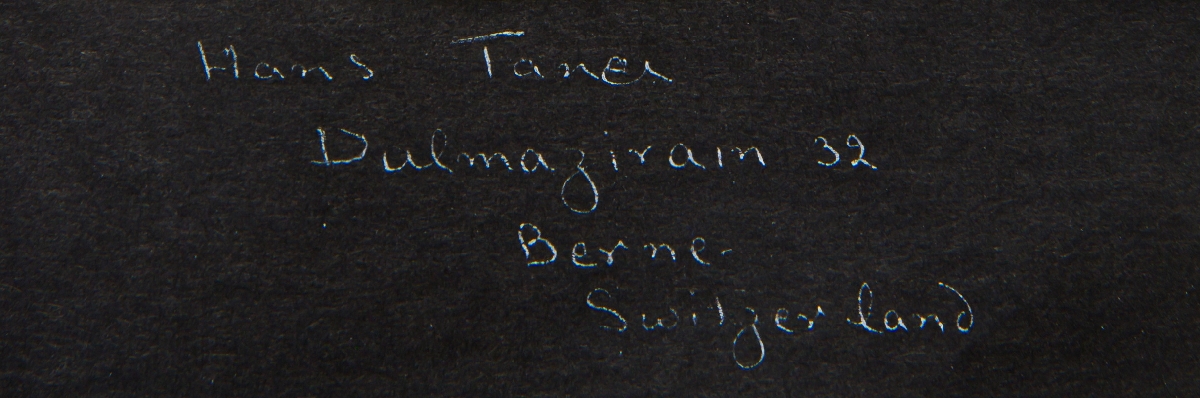 Hans Taner
Dulmazirain 32
Berne.
Switzerland